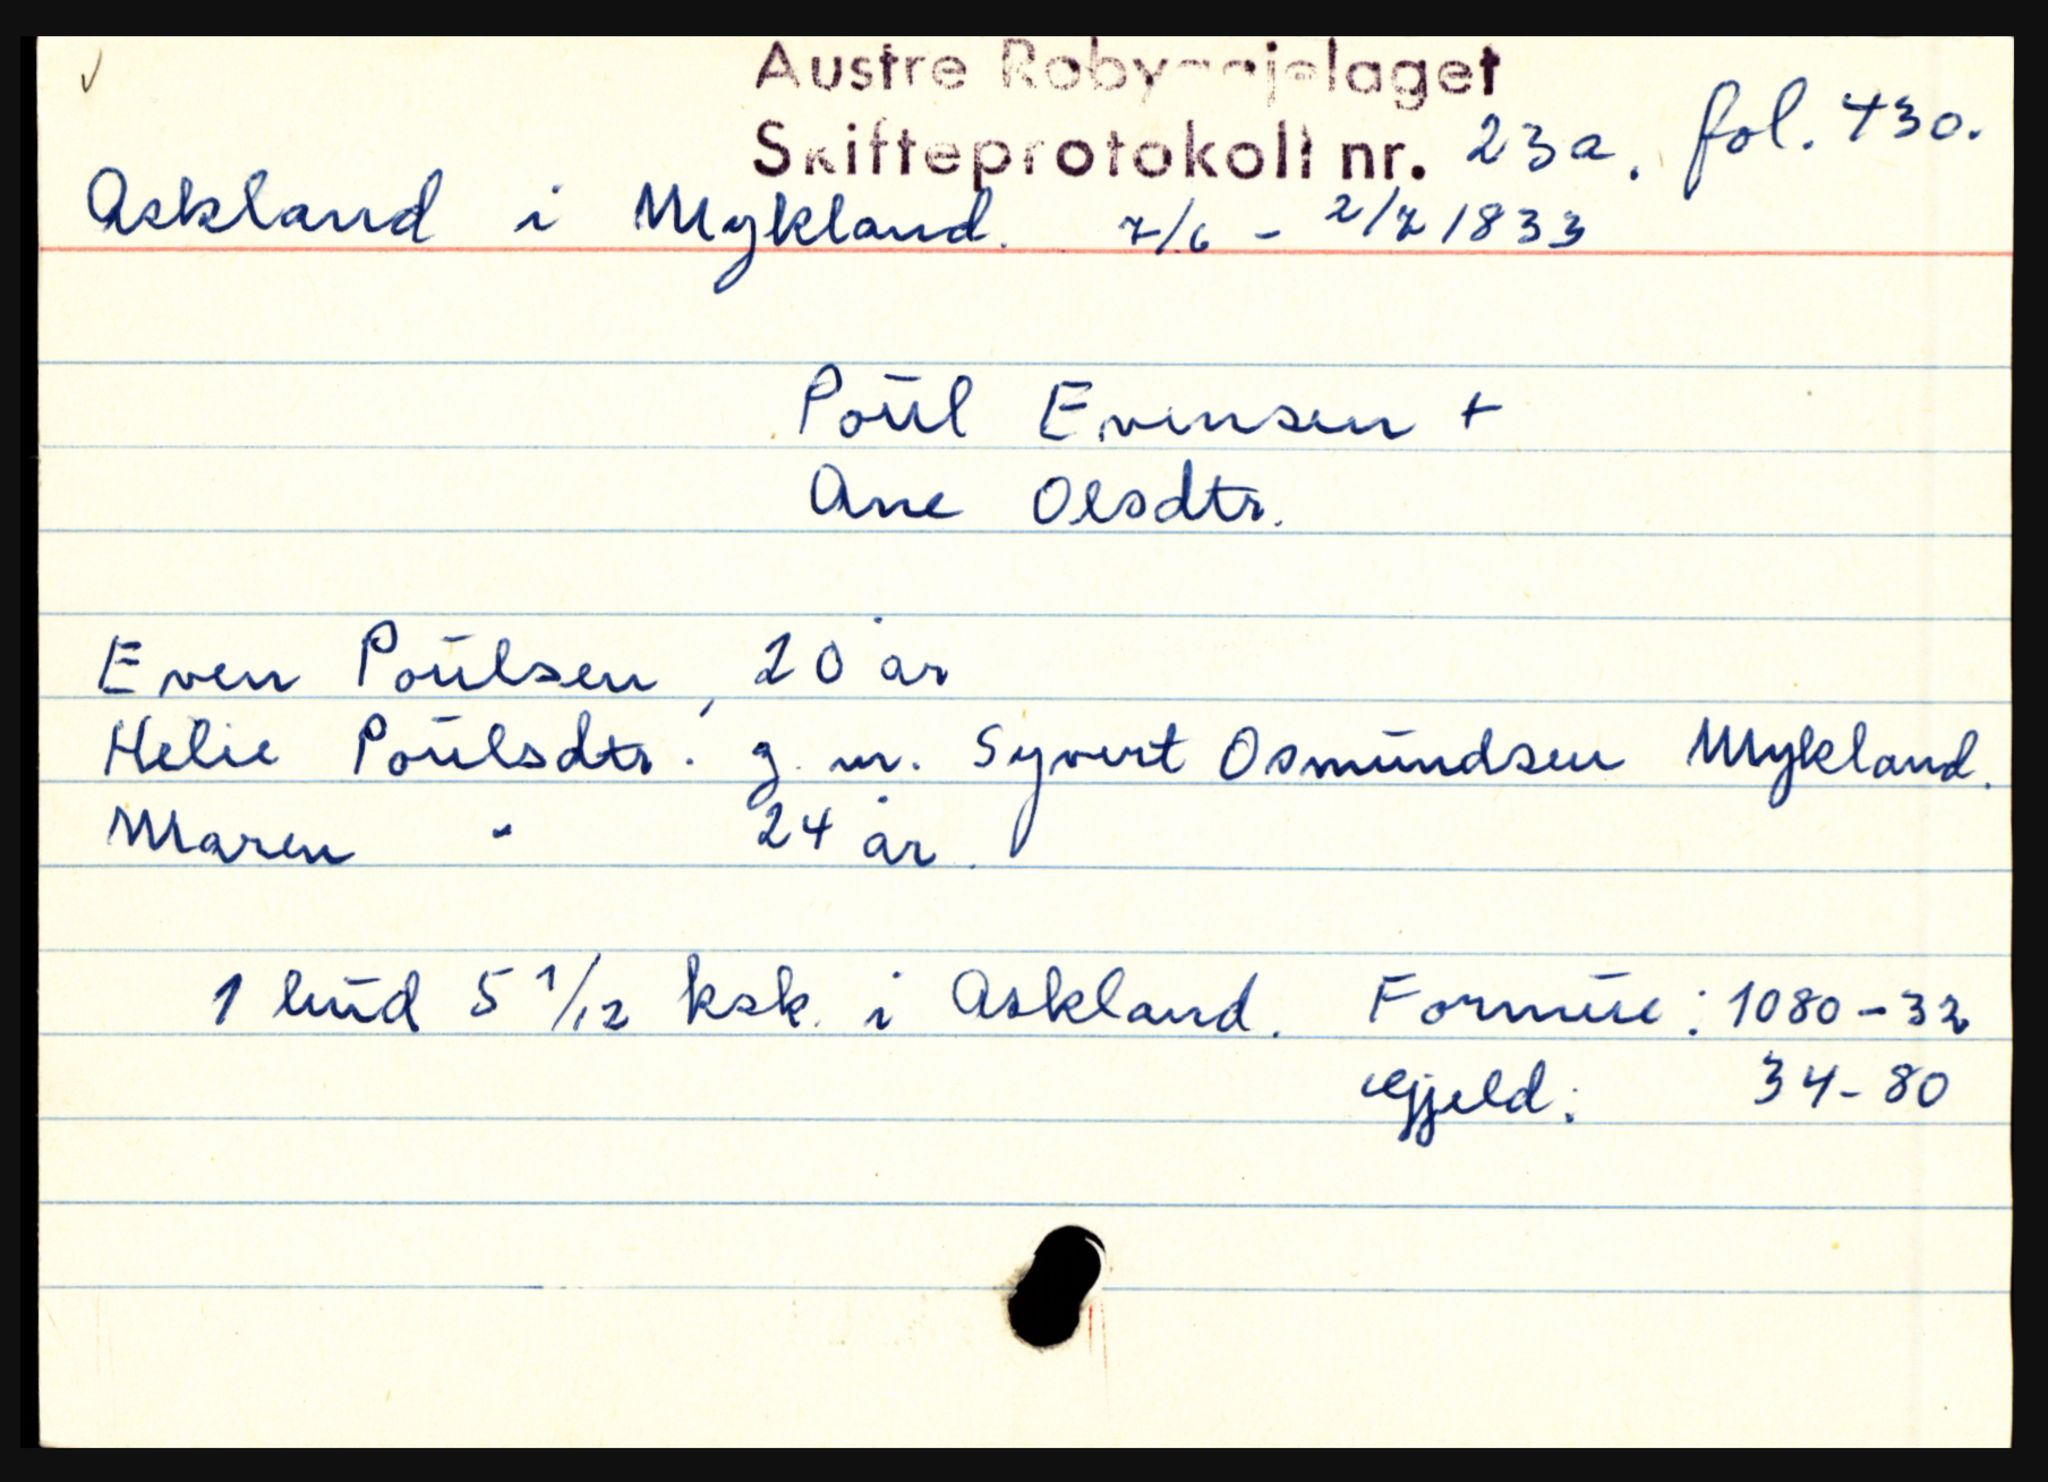 Austre Robyggjelaget
Skifteprotokoll nr. 23a. fol. 430.
Askland i Mykland. 7/6 - 2/7 1833
Poul Evensen +
Ane Olsdtr.
Even Poulsen, 20 år
Helie Poulsdtr. g. m. Syvert Osmundsen Mykland.
Maren " 24 år.
1 hud 5 1/12 ksk. i Askland. Formue: 1080-32
Gjeld: 34-80